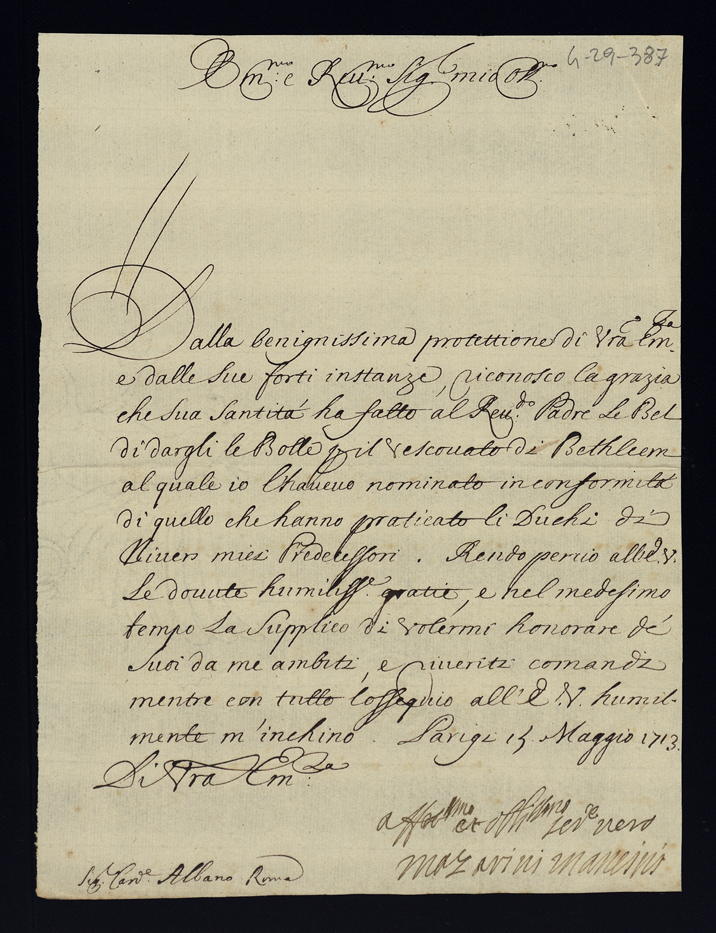 Em.mo e Reu.mo Sig.r mio Oss.mo
4-29-387
Dalla benignissima protettione di Vra Em.za
e dalle sue forti instanze, riconosco la grazia
che sua santitá ha fatto al Reu.do Padre Le Bel
di dargli le Bolle p il Vescouato di Bethleem
al quale io l'haueuo nominato in conformitá
di quello che hanno praticato li Duchi di
Nivers miei Predecessori. Rendo perciò all'E.V.
Le douute humiliss.e gratie, e nel medesimo
tempo La supplico di volermi honorare dé
suoi da me ambiti, e riueriti comandi
mentre con tutto l'ossequio all'E.V. humil-
mente m'inchino. Parigi 15 Maggio 1713.
Di Vra Em.za
aff.mo et obb.mo ser.re vero
mazarini mancini
Sig. Card.e Albano Roma